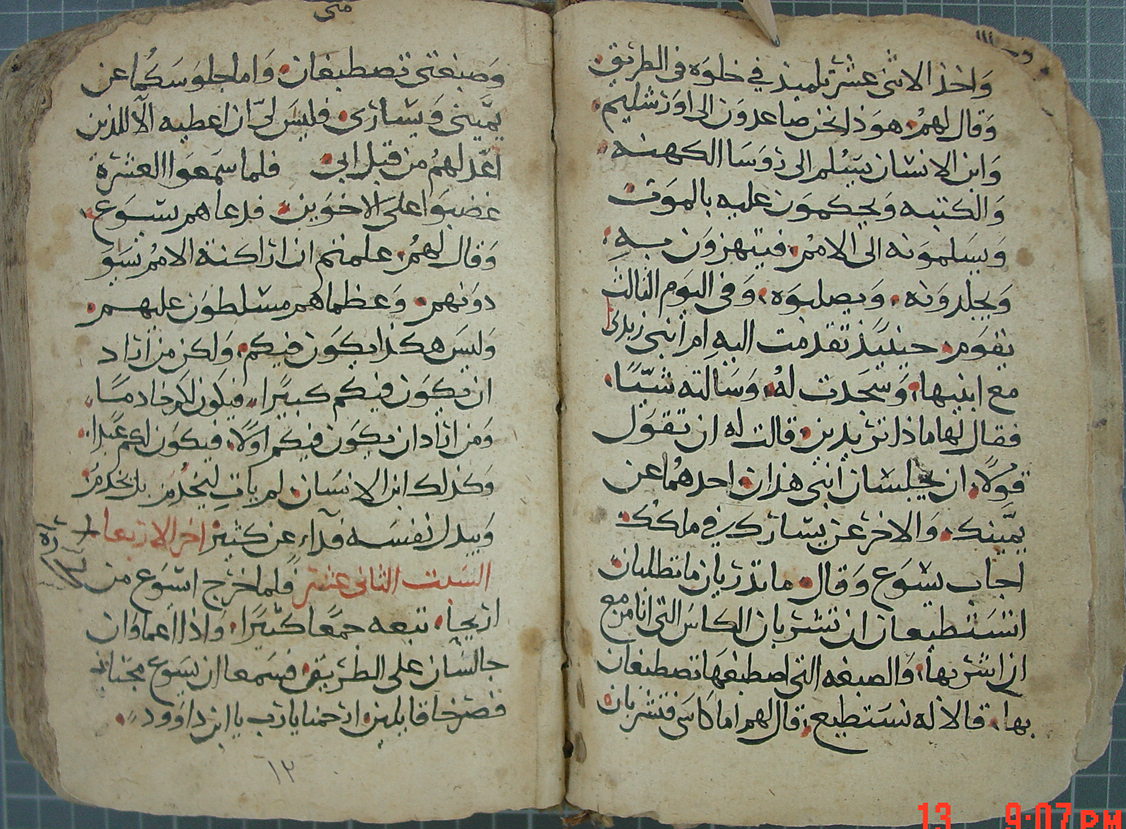 واخذ الاثنى عشر تلميذ في خلوه فى الطريق
وقال لهم هوذا نحن صاعدون الى اورشليم
وابن الانسان يسلم الى روسا الكهنه
والكتبه ويحكمون عليه بالموت
ويسلمونه الى الامم فيتهزون به
ويجلدونه ويصلبوه وفى اليوم الثالث
يقوم حينيذ تقدمت اليه ام ابنى زبدى
مع ابنيها وسجدت له وسالته شيًا
فقال لها ماذا تريدين قالت له ان تقول
قولًا ان يجلسان ابنى هذان احدهما عن
يمينك والاخر عن يسارك في ملكك
اجاب يسوع وقال ما تدريان ما تطلبان
اتستطيعان ان تشربان الكاس التى انا مزمع
ان اشربها والصبغه التى اصطبغها تصطبغان
بها قالا له نستطيع قال لهم اما كاسى فتشربان
متى
وصبغتى تصطبغان واما جلوسكما عن
يمينى ويسارى فليس لى ان اعطيه الا للذين
اعد لهم من قبل ابى فلما سمعوا العشرة
غضبوا على الاخوين فدعاهم يسوع
وقال لهم علمتم ان اراكنة الامم يسو
دونهم وعظماهم مسلطون عليهم
وليس هكذا يكون فيكم ولكن من اراد
ان يكون فيكم كبيرا فيكون لكم خادمًا
ومن اراد ان يكون فيكم اولًا فيكون لكم عبدا
وكذلك ابن الانسان لم يات ليخدم بل يخدم
ويبدل نفسه فداء عن كثير اخر الاربعا
السبت الثانى عشر فلما خرج اسوع من
اريحا تبعه جمعًا كثيرًا واذا اعماوان
جالسان على الطريق فسمعا ان يسوع مجتاز
فصرخا قايلين ارحمنا يارب يا ابن داوود
١٣
13 9:07PM